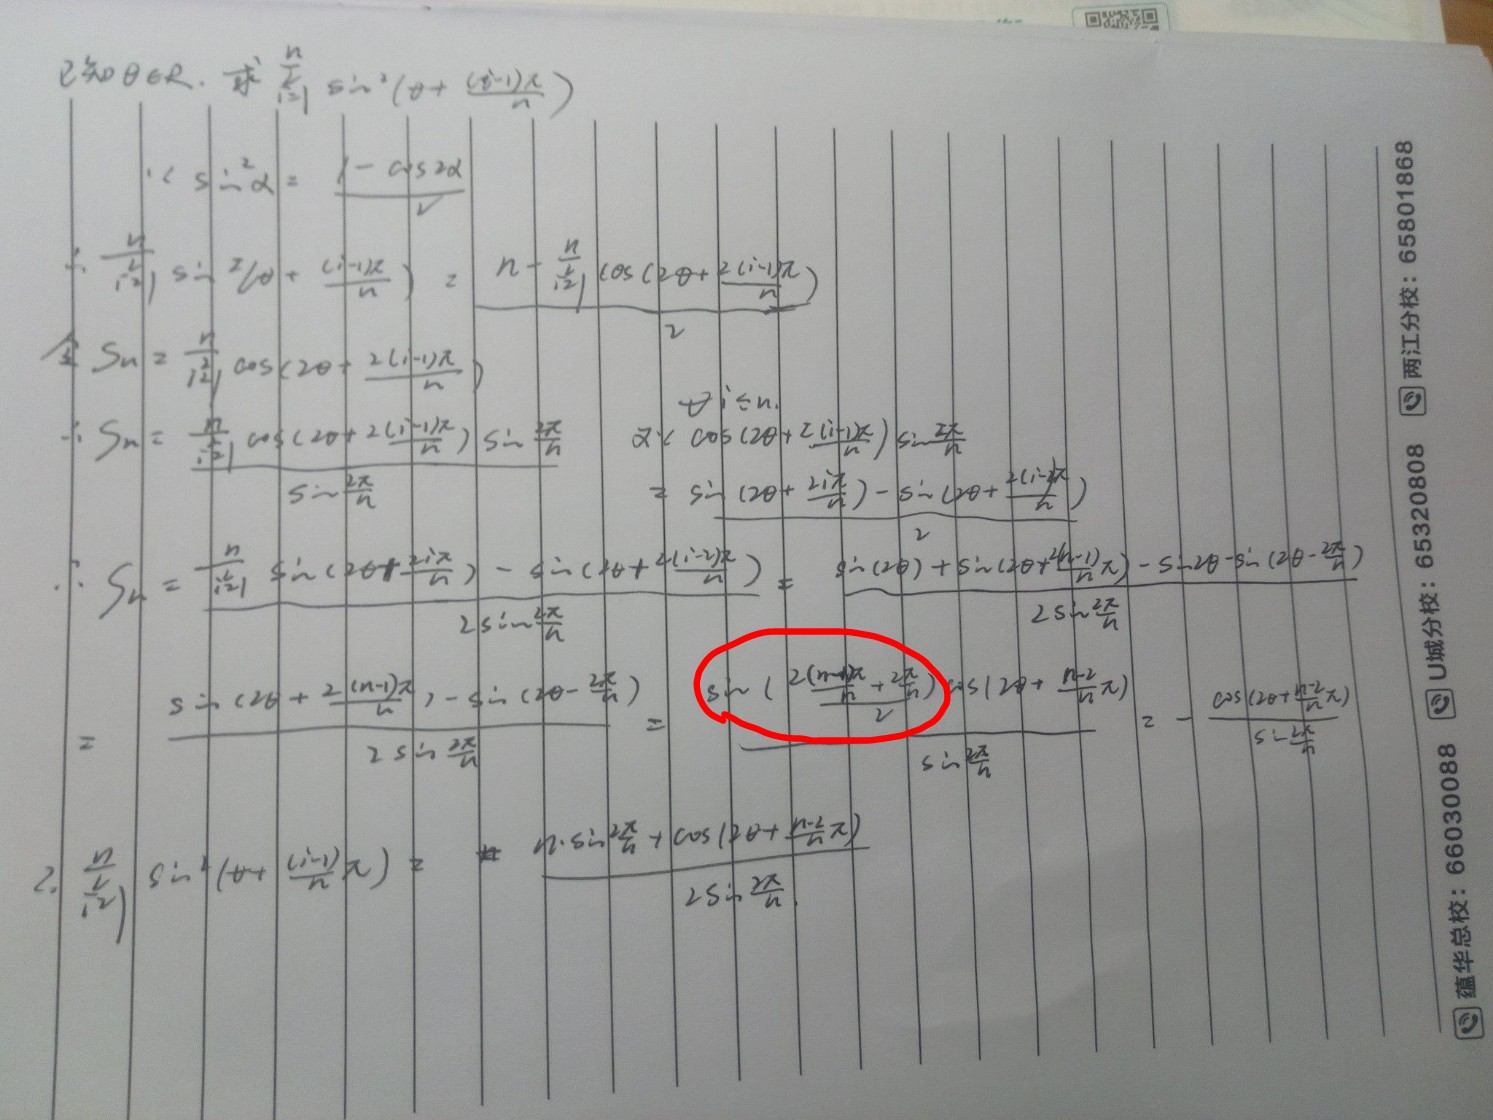 已知θ∈R. 求 \sum_{i=1}^{n} sin²(θ + \frac{(i-1)π}{n})
∵ sin²α = \frac{1 - cos2α}{2}
∴ \sum_{i=1}^{n} sin²(θ + \frac{(i-1)π}{n}) = \frac{n - \sum_{i=1}^{n} cos(2θ + \frac{2(i-1)π}{n})}{2}
令 Sn = \sum_{i=1}^{n} cos(2θ + \frac{2(i-1)π}{n})
∀ i ≤ n.
∴ Sn = \frac{\sum_{i=1}^{n} cos(2θ + \frac{2(i-1)π}{n}) sin\frac{2π}{n}}{sin\frac{2π}{n}} 又∵ cos(2θ + \frac{2(i-1)π}{n}) sin\frac{2π}{n}
= \frac{sin(2θ + \frac{2iπ}{n}) - sin(2θ + \frac{2(i-2)π}{n})}{2}
∴ Sn = \sum_{i=1}^{n} \frac{sin(2θ + \frac{2iπ}{n}) - sin(2θ + \frac{2(i-2)π}{n})}{2sin\frac{2π}{n}} = \frac{sin(2θ) + sin(2θ + \frac{2(n-1)}{n}π) - sin2θ - sin(2θ - \frac{2π}{n})}{2sin\frac{2π}{n}}
= \frac{sin(2θ + \frac{2(n-1)π}{n}) - sin(2θ - \frac{2π}{n})}{2sin\frac{2π}{n}} = \frac{sin(\frac{\frac{2(n-1)π}{n} + \frac{2π}{n}}{2}) cos(2θ + \frac{n-2}{n}π)}{sin\frac{2π}{n}} = - \frac{cos(2θ + \frac{n-2}{n}π)}{sin\frac{2π}{n}}
∴ \sum_{i=1}^{n} sin²(θ + \frac{(i-1)}{n}π) = \frac{n·sin\frac{2π}{n} + cos(2θ + \frac{n-2}{n}π)}{2sin\frac{2π}{n}}.
蕴华总校：66030088 U城分校：65320808 两江分校：65801868